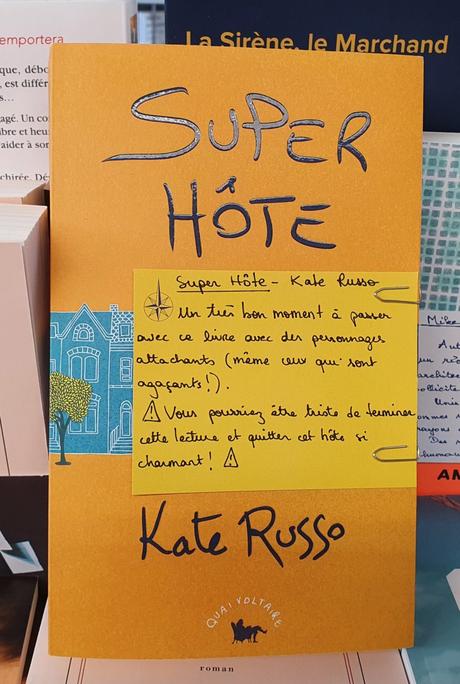 emportera
La Sirène, le Marchand
que, débo
est différ
s…
agé. Un co
ibre et heu
aider à sor
chirée. Dé
SUPER
HÔTE
Super Hôte - Kate Russo
Un très bon moment à passer
avec ce livre avec des personnages
attachants (même ceux qui sont
agaçants !).
⚠ Vous pourriez être triste de terminer
cette lecture et quitter cet hôte si
charmant ! ⚠
Mike
Kate Russo
QUAI VOLTAIRE
AM
roman